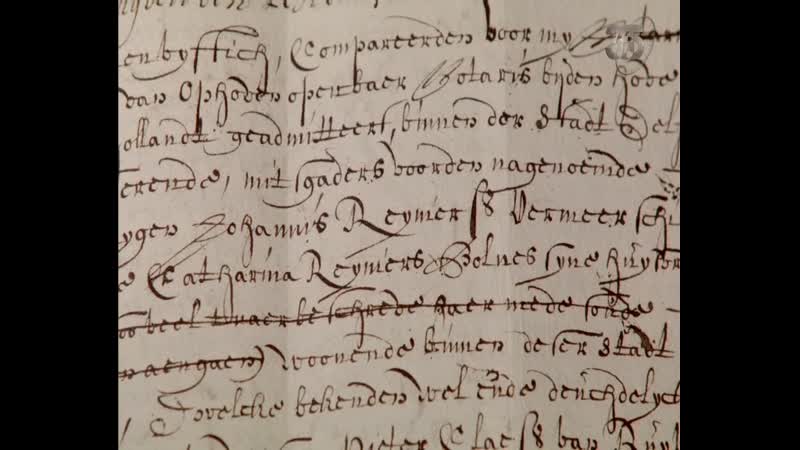 en vyfftich, Compareerden voor my
van Ophoven openbaer Notaris byden hove
ollandt geadmitteert, binnen der stadt Del
erende, mitsgaders voorden nagenoemde
ygen Johannis Reyniersz Vermeer
Catharina Reyniers Bolnes syne huys
beschrede haer mede
naengaen) woonende binnen deser stadt
welcke bekenden wel ende deuchdelyck
Pieter Claesz van Ruy